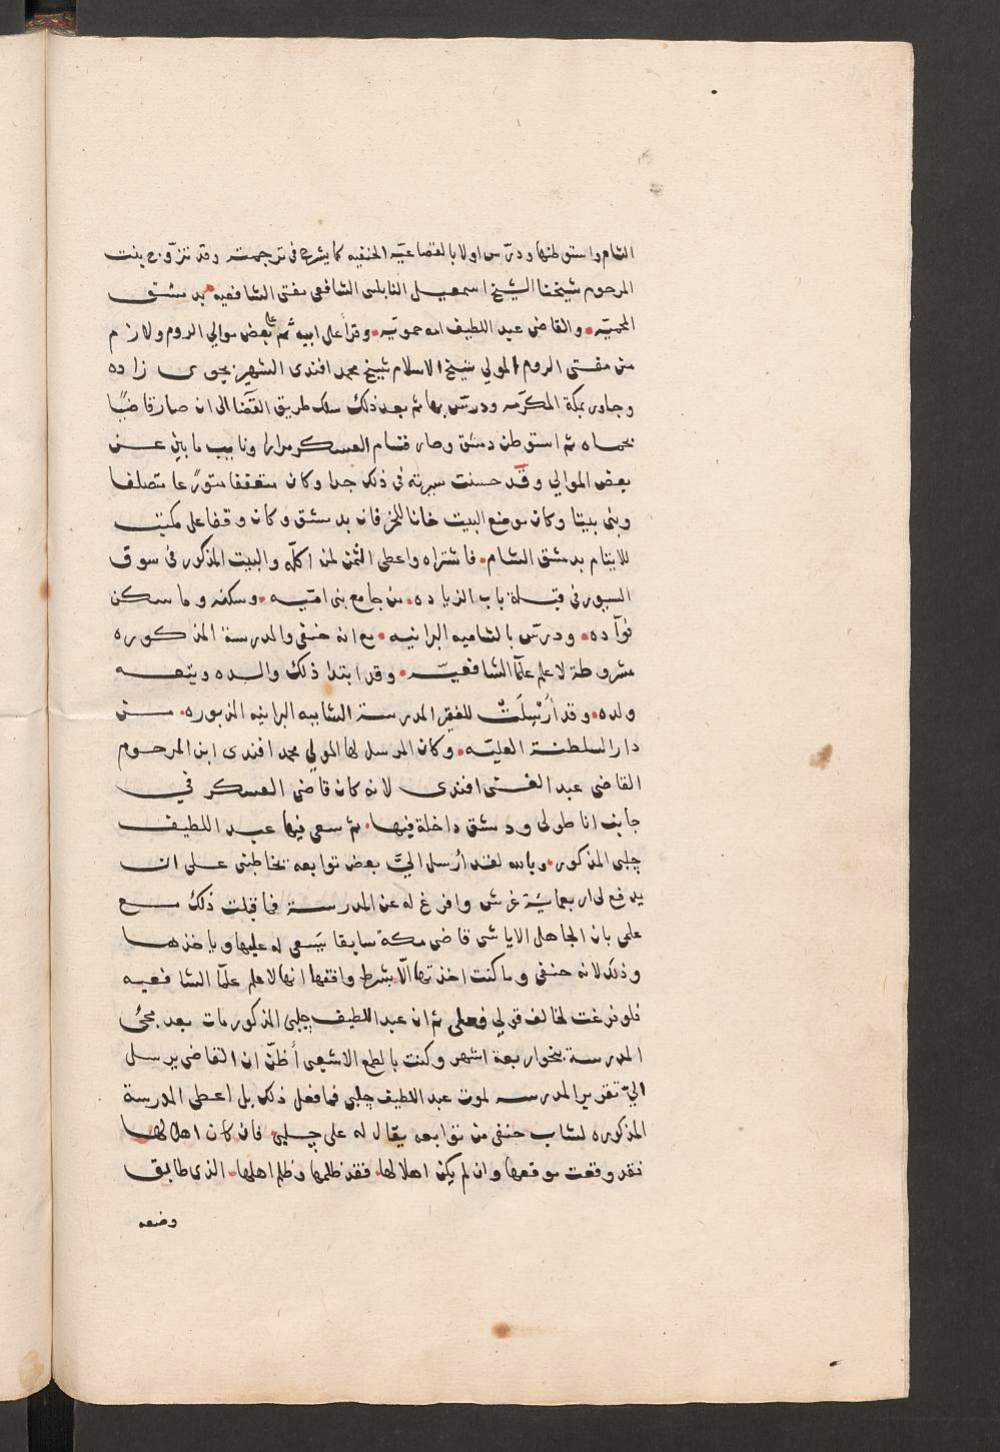 الشام واستوطنها ودرّس اولا بالقصاعيّه الحنفيه كما يشرح فى ترجمته وقد تزوّج بنت
المرحوم شيخنا الشيخ اسمعيل النابلسى الشافعى مفتى الشافعيه بدمشق
المحميّه والقاضى عبد اللطيف امه حمويّه وقرأ على ابيه ثم على بعض موالي الروم ولازم
من مفتى الروم المولي شيخ الاسلام شيخ محمد افندى الشهير بجوى زاده
وجاور بمكة المكرّمه ودرّس بها ثم بعد ذلك سلك طريق القضا الى ان صار قاضيًا
بحماه ثم استوطن دمشق وصار قسّام العسكر مرارا ونايب ما بين عن
بعض الموالي وقد حسنت سيرته فى ذلك جدا وكان متعففا متورّعا متصلفا
وبنى بيتا وكان موضع البيت خانا للخرفان بدمشق وكان وقفا على مكتب
للايتام بدمشق الشام فاشتراه واعطى الثمن لمن اكله والبيت المذكور فى سوق
السيور فى قبلة باب الزياده من جامع بنى اميّه وسكنه وما سكن
فوآده ودرّس بالشاميه البرانيه مع انه حنفى والمدرسة المذكوره
مشروطة لاعلم علما الشافعيّه وقد ابتدا ذلك والده وتبعه
ولده وقد أُرْسِلَتْ للفقير المدرسة الشاميه البرانيه المزبوره من
دار السلطنة العليّه وكان المرسل لها المولي محمد افندى ابن المرحوم
القاضى عبد الغنى افندى لانه كان قاضى العسكر في
جانب اناطولى ودمشق داخلة فيها ثم سعى فيها عبد اللطيف
چلبى المذكور وبالله لقد أرسل اليَّ بعض توابعه يخاطبنى على ان
يدفع لى اربعمائة غرش وافرغ له عن المدرسة فما قبلت ذلك مع
علمى بان الجاهل الاياشى قاضى مكة سابقا يسعى له عليها وياخذها
وذلك لانه حنفى وما كنت اخذتها الّا بشرط واقفها انها لاعلم علما الشافعيه
فلو فرغت لخالف قولي فعلى ثم ان عبد اللطيف چلبى المذكور مات بعد مجئ
المدرسة بنحو اربعة اشهر وكنت بالطمع الاشعبى أظنّ ان القاضى يرسل
اليّ تقرير المدرسه لموت عبد اللطيف چلبى فما فعل ذلك بل اعطى المدرسة
المذكوره لشاب حنفى من توابعه يقال له على چلبى فان كان اهلا لها
فقد وقعت موقعها وان لم يكن اهلا لها فقد ظلمها وظلم اهلها الذى طابق
وضعه